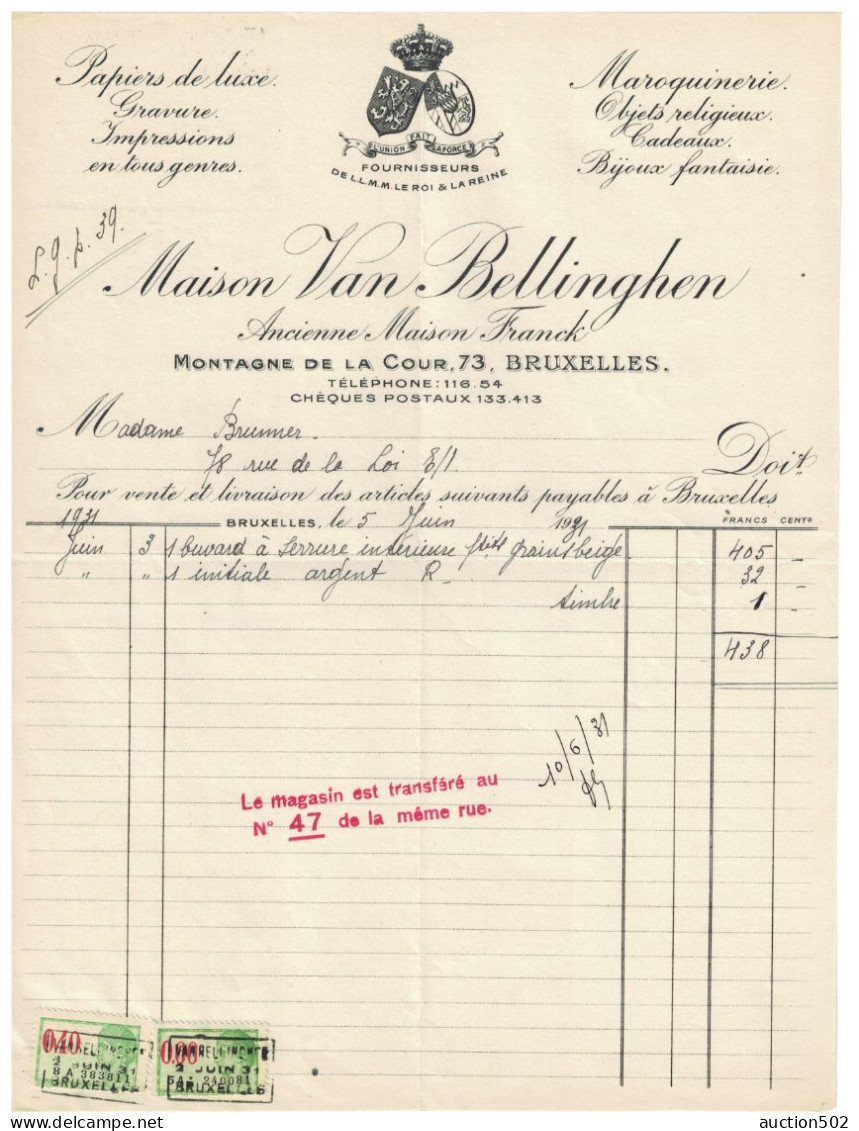 Papiers de luxe.
Gravure.
Impressions
en tous genres.
L'UNION FAIT LA FORCE
FOURNISSEURS
DE L.L.M.M. LE ROI & LA REINE
Maroquinerie.
Objets religieux.
Cadeaux.
Bijoux fantaisie.
L. g. p. 39.
Maison Van Bellinghen
Ancienne Maison Franck
MONTAGNE DE LA COUR, 73, BRUXELLES.
TÉLÉPHONE: 116.54
CHÈQUES POSTAUX 133.413
Madame Brunner.
78 rue de la Loi E/V
Doit
Pour vente et livraison des articles suivants payables à Bruxelles
1931 BRUXELLES, le 5 Juin 1931 FRANCS CENTS
Juin 3 1 buvard à serrure intérieure grains beige 405 —
" " 1 initiale argent R — 32 —
timbre 1 —
438
10/6/31
Le magasin est transféré au
N° 47 de la même rue.
0.40
VAN BELLINGHEN
2 JUIN 31
8 A 383811
BRUXELLES
0.60
VAN BELLINGHEN
2 JUIN 31
5A 240081
BRUXELLES
auction502